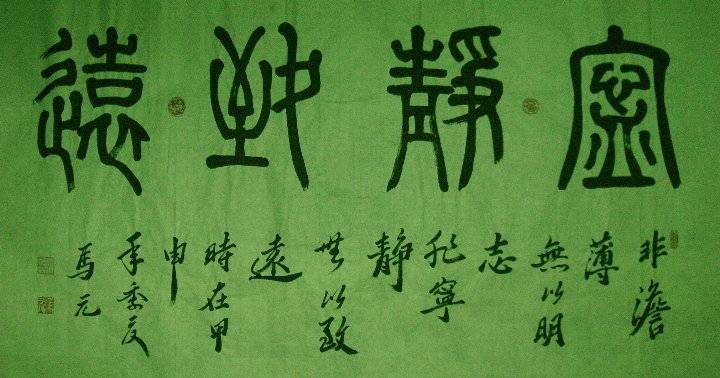 寧靜致遠
非澹
薄
無以明
志
非寧
靜
無以致
遠
時在甲
申
年季夏
馬元